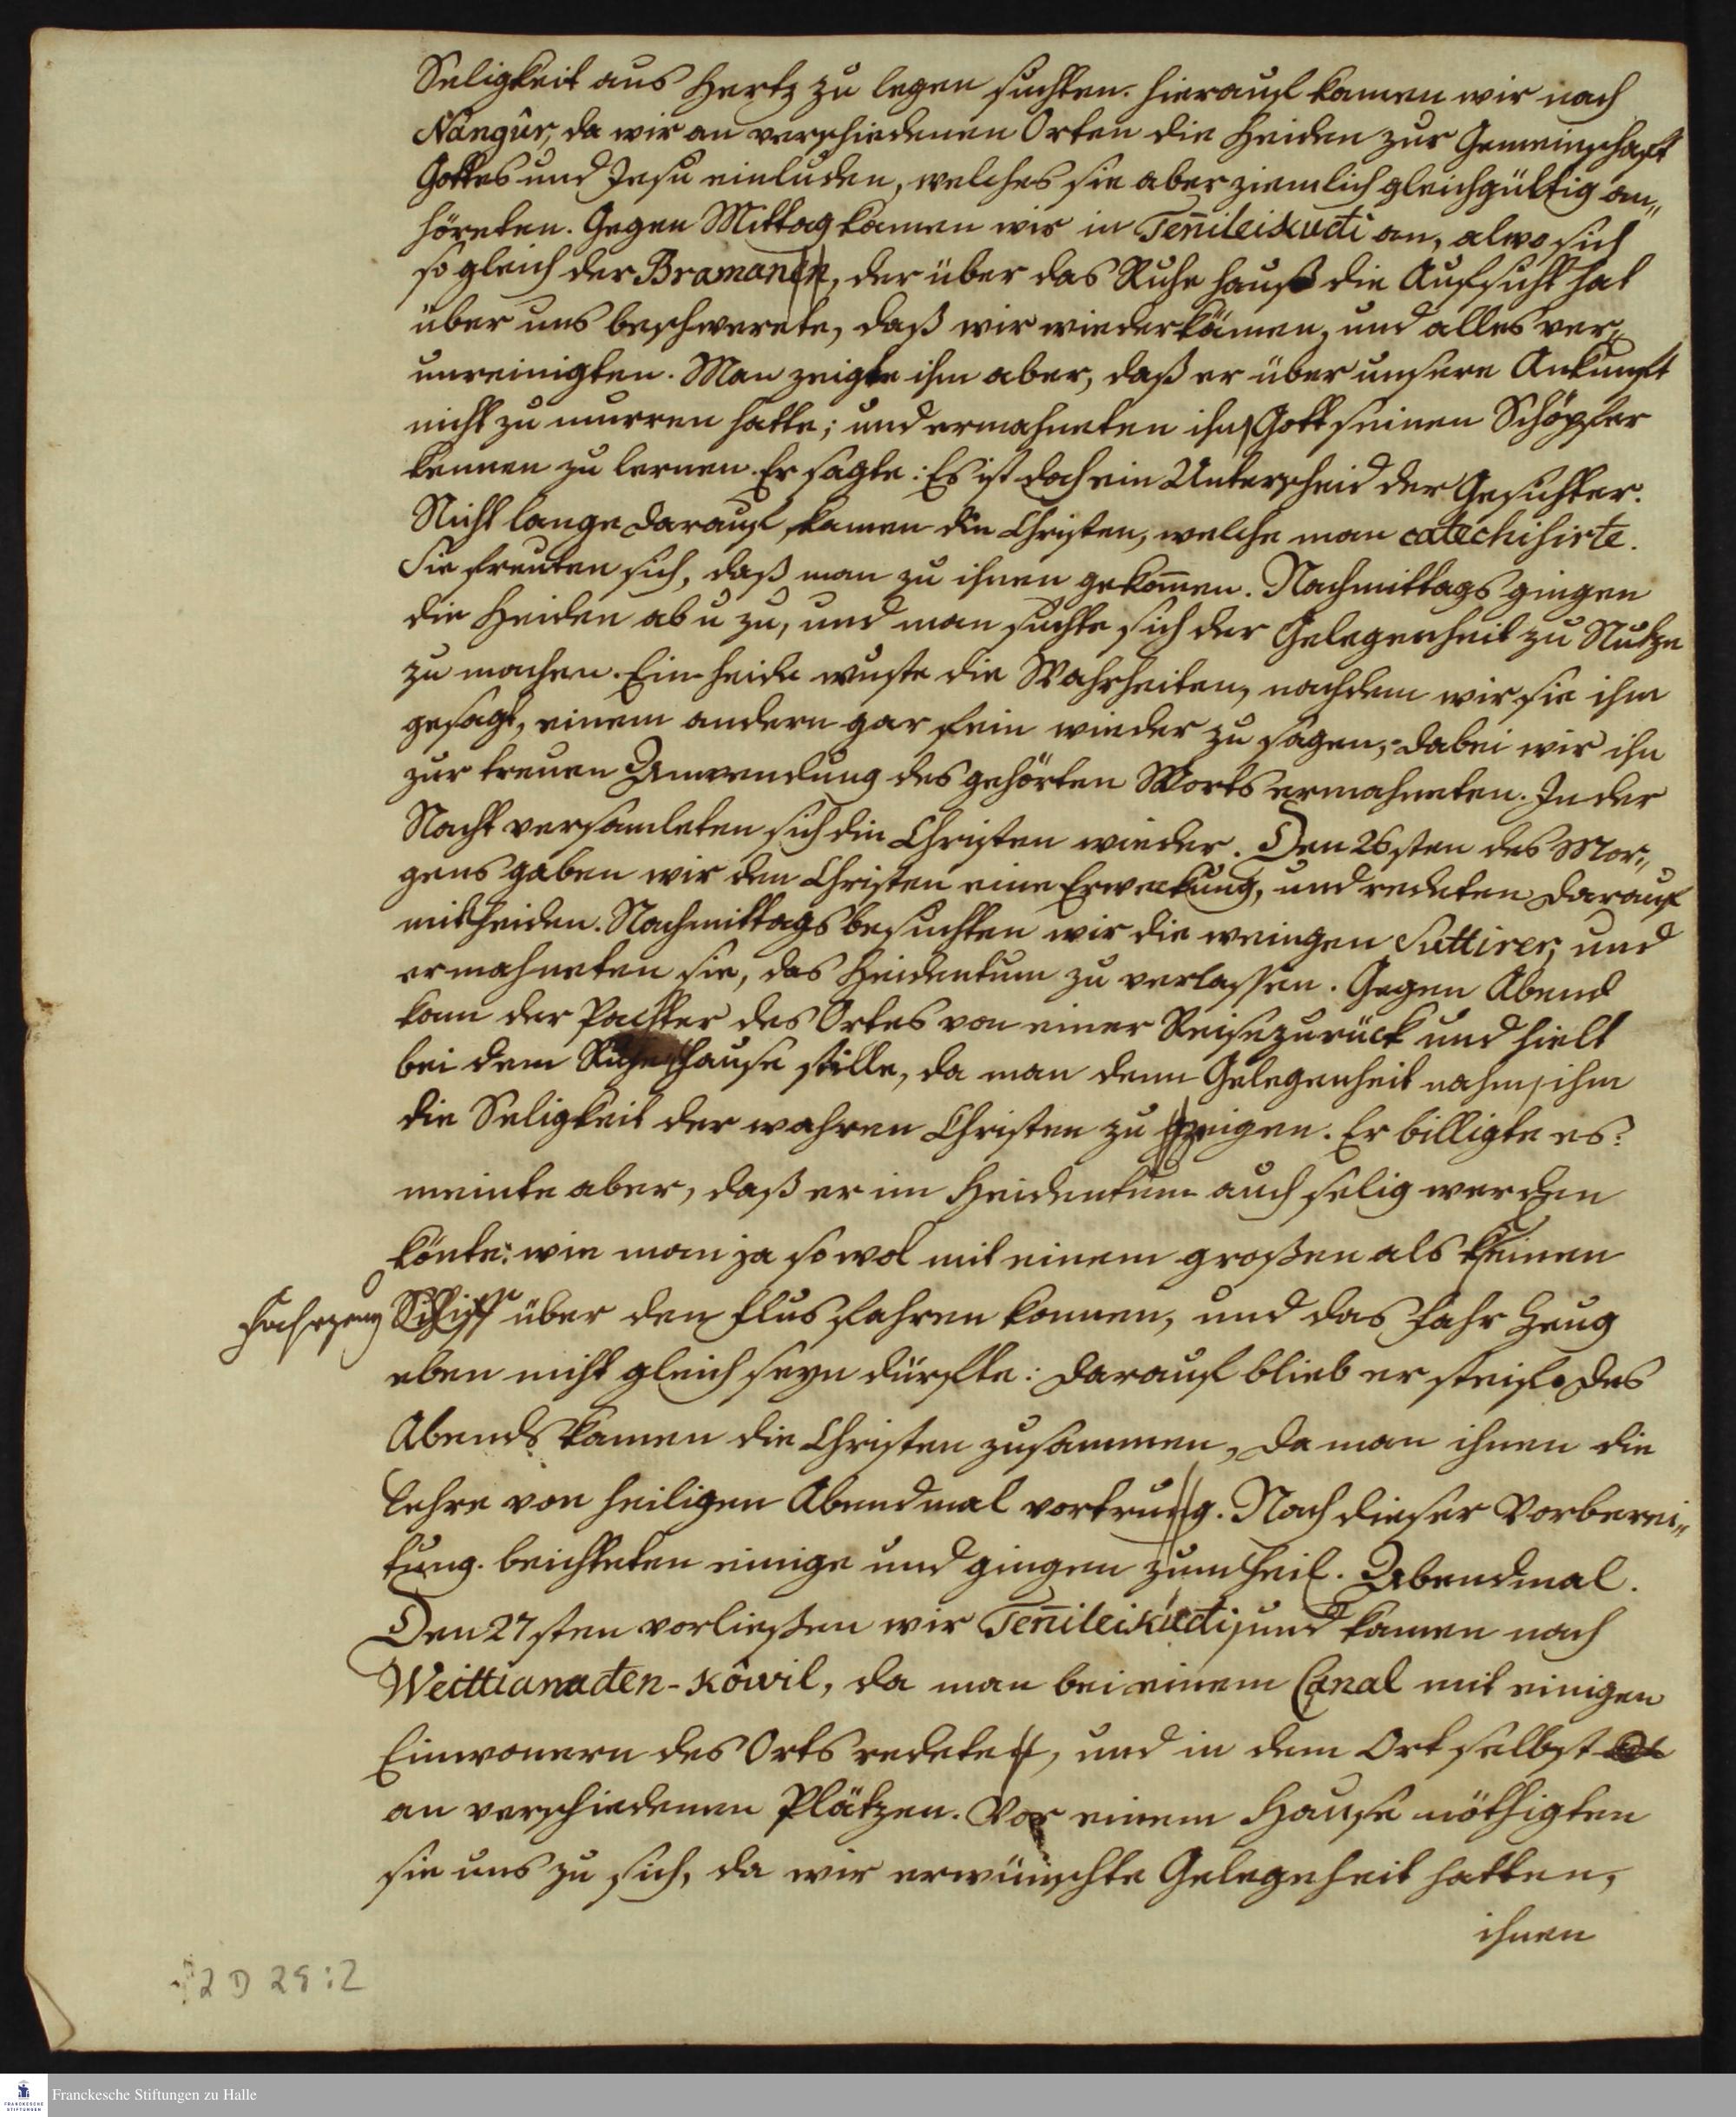 Seligkeit ans Hertz zu legen suchten. Hierauf kamen wir nach
Nângûr, da wir an verschiedenen Orten die Heiden zur Gemeinschaft
Gottes und Jesu einluden, welches sie aber ziemlich gleichgültig an„
höreten. Gegen Mittag kamen wir in Teñileikudi an, alwo sich
so gleich der Bramanen, der über das Ruhe hauß die Aufsicht hat
über uns beschwerete, daß wir wiederkämen, und alles ver„
unreinigten. Man zeigte ihm aber, daß er über unsere Ankunft
nicht zu murren hatte; und ermahneten ihn Gott seinen Schöpfer
kennen zu lernen. Er sagte: Es ist doch ein Unterscheid der Gesichter.
Nicht lange darauf kamen die Christen, welche man catechisirte.
Sie freuten sich, daß man zu ihnen gekom̄en. Nachmittags gingen
die Heiden ab u zu, und man suchte sich der Gelegenheit zu Nutze
zu machen. Ein Heide wuste die Wahrheiten, nachdem wir sie ihm
gesagt, einem andern gar fein wieder zu sagen, dabei wir ihn
zur treuen Anwendung des gehörten Worts ermahneten. In der
Nacht versamleten sich die Christen wieder. Den 26sten des Mor„
gens gaben wir den Christen eine Erweckung, und redeten darauf
mit Heiden. Nachmittags besuchten wir die wenigen Suttirer, und
ermahneten sie, das Heidentum zu verlassen. Gegen Abend
kam der Pachter des Ortes von einer Reise zurück und hielt
bei dem Ruhe hause stille, da man denn Gelegenheit nahm, ihm
die Seligkeit der wahren Christen zu zeigen. Er billigte es:
meinte aber, daß er im Heidentum auch selig werden
könte: wie man ja so wol mit einem großen als kleinen
Fahrzeug Schiff über den Flus fahren konnen, und das Fahr Zeug
eben nicht gleich seyn dürfte: darauf blieb er steif. Des
Abends kamen die Christen zusammen, da man ihnen die
Lehre von heiligen Abendmal vortrug. Nach dieser Vorberei„
tung beichteten einige und gingen zum Heil. Abendmal.
Den 27sten verließen wir Teñileikudi, und kamen nach
Weittianaden-kôwil, da man bei einem Canal mit einigen
Einwonern des Orts redete, und in dem Ort selbst
an verschiedenen Plätzen. Vor einem Hause nöthigten
sie uns zu sich, da wir erwünschte Gelegenheit hatten,
ihnen
2 D 25:2
Franckesche Stiftungen zu Halle
FRANCKESCHE
STIFTUNGEN